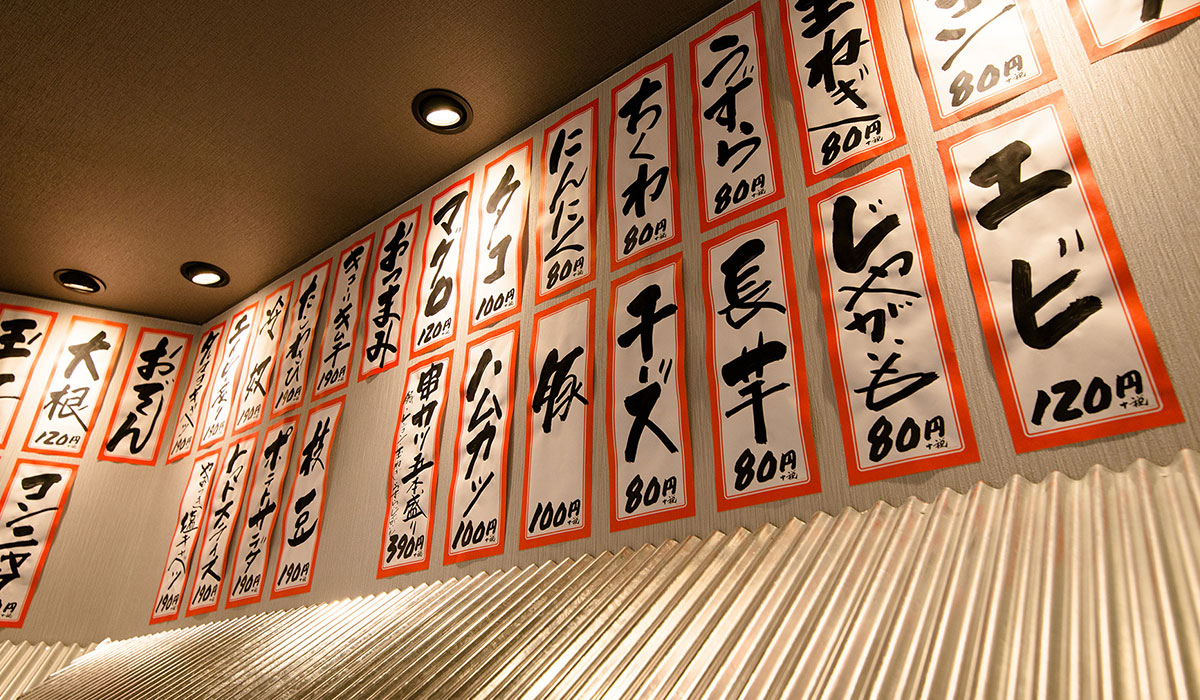 エビ
120円
+税
玉ねぎ
80円
+税
じゃがいも
80円
+税
うずら
80円
+税
長芋
80円
+税
ちくわ
80円
+税
チーズ
80円
+税
にんにく
80円
+税
豚
100円
+税
タコ
100円
+税
ハムカツ
100円
+税
マグロ
120円
+税
串カツ五本盛り
390円
+税
おつまみ
キューリキムチ
190円
枝豆
190円
たこわさび
190円
ポテトサラダ
190円
冷奴
190円
トマトスライス
190円
190円
塩キャベツ
190円
190円
おでん
大根
120円
コンニャク
80円
+税